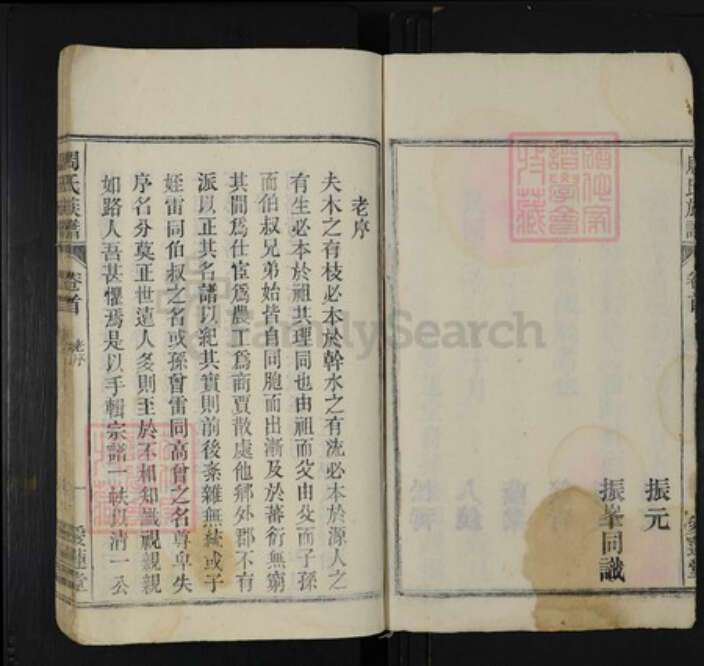 振元
振峯同識
老序
夫木之有枝必本於幹水之有流必本於源人之
有生必本於祖其理同也由祖而父由父而子孫
而伯叔兄弟始皆自同胞而出漸及於蕃衍無窮
其間爲仕宦爲農工爲商賈散處他鄉外郡不有
派以正其名譜以紀其實則前後紊雜無統或子
姪雷同伯叔之名或孫曾雷同高曾之名尊卑失
序名分莫正世遠人多則至於不相知識視親親
如路人吾甚懼焉是以手輯宗譜一帙以清一公
周氏族譜
卷首
老序
一
愛蓮堂
周氏族譜
卷首
愛蓮堂
FamilySearch